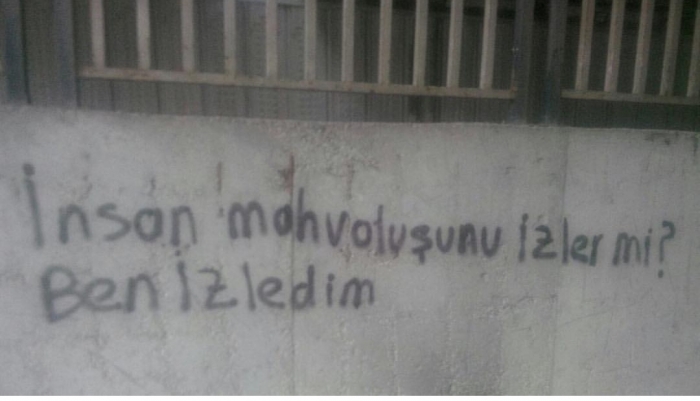 İnsan mahvoluşunu izler mi?
Ben izledim